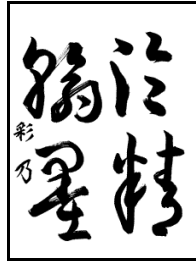 精
翰墨
彩乃